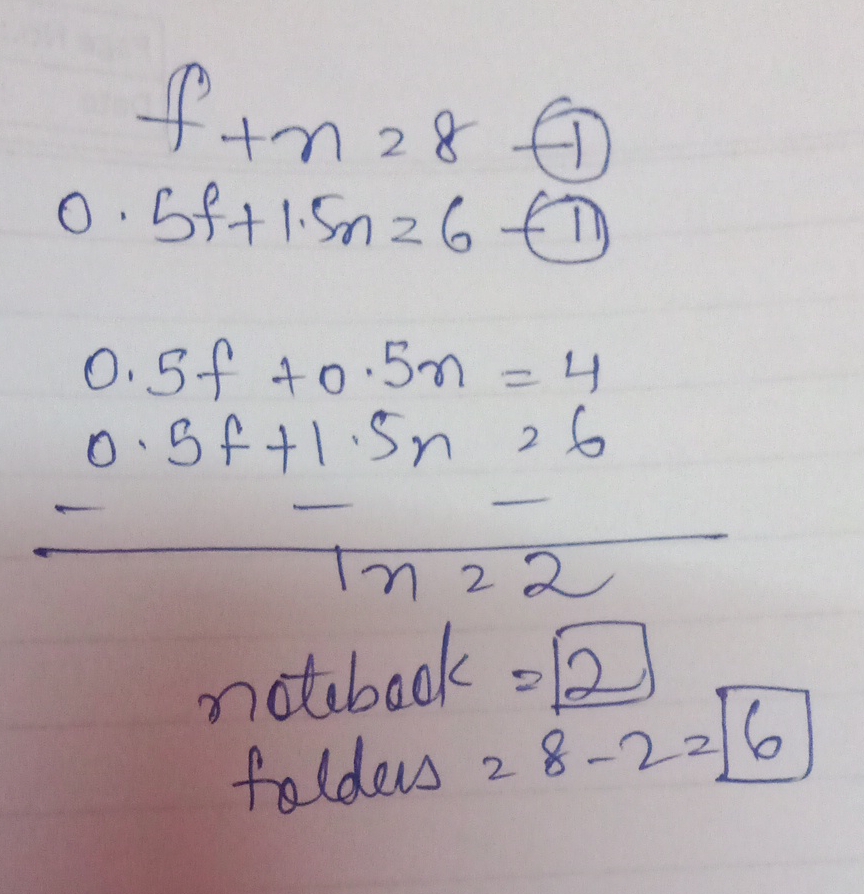 f+n=8 —(I)
0.5f+1.5n=6 —(II)
0.5f+0.5n=4
0.5f+1.5n=6
— — —
1n=2
notebook=2
folders=8-2=6